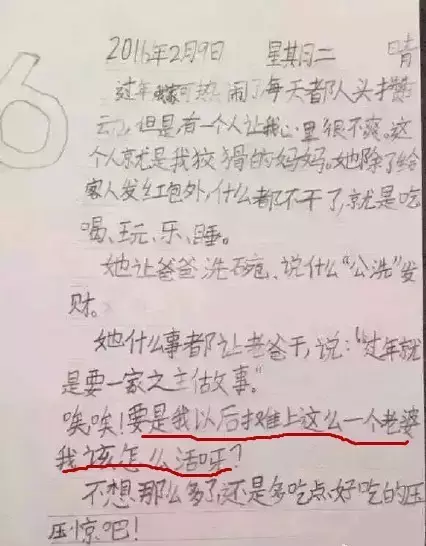 6
2016年2月9日 星期二 晴
过年我家可热闹了每天都人头攒
云，但是有一个人让我心里很不爽。这
个人就是我狡猾的妈妈。她除了给
客人发红包外，什么都不干了，就是吃
喝、玩、乐、睡。
她让爸爸洗碗、说什么“公洗”发
财。
她什么事都让老爸干，说：“过年就
是要一家之主做事。”
唉唉！要是我以后摊上这么一个老婆
我该怎么活呀？
不想那么多了，还是多吃点好吃的压
压惊吧！